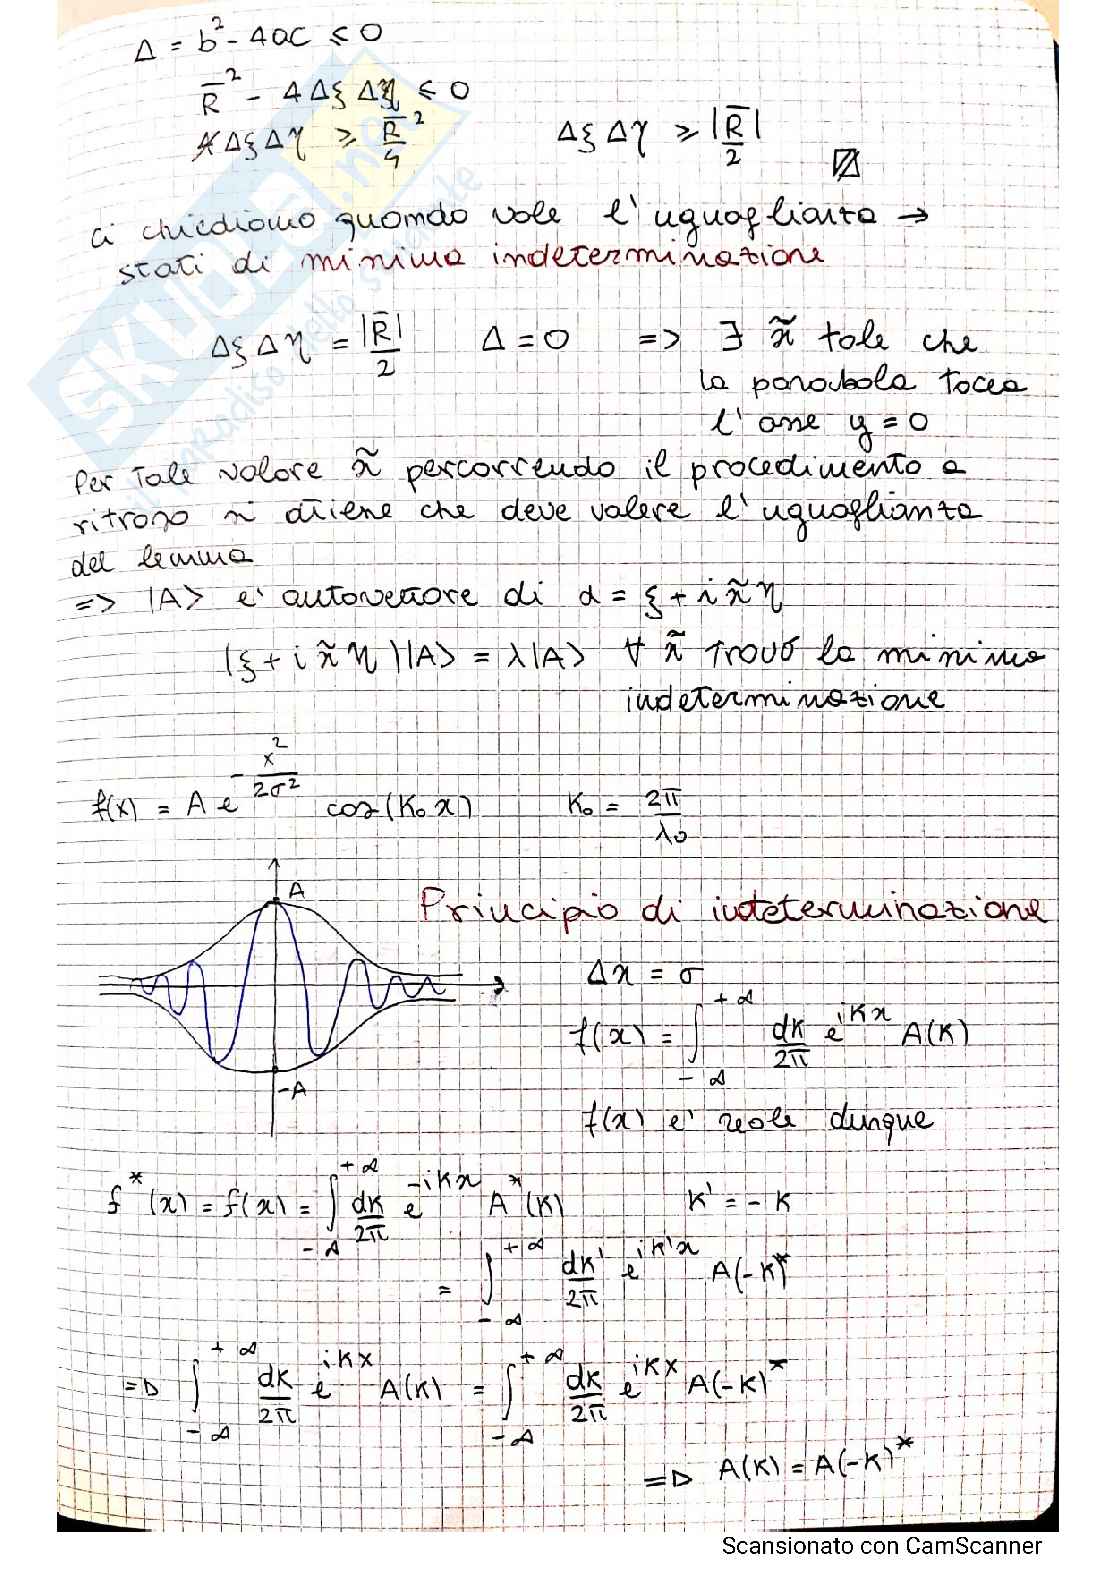 Δ = b² - 4ac ≤ 0
R̄² - 4 Δξ Δη ≤ 0
4 Δξ Δη ≥ R̄²/4    Δξ Δη ≥ |R̄|/2
ci chiediamo quando vale l'uguaglianza →
stati di minima indeterminazione
Δξ Δη = |R̄|/2    Δ = 0    => ∃ x̃ tale che
la parabola tocca
l'asse y = 0
Per tale valore x̃ percorrendo il procedimento a
ritroso si ottiene che deve valere l'uguaglianza
del lemma
=> |A> e' autovettore di α = ξ + i x̃ η
(ξ + i x̃ η)|A> = λ|A>    ∀ x̃ trovo la minima
indeterminazione
f(x) = A e^{-x²/2σ²} cos(K₀ x)    K₀ = 2π/λ₀
A
Principio di indeterminazione
Δx = σ
f(x) = ∫_{-∞}^{+∞} dK/2π e^{iKx} A(K)
-A
f(x) e' reale dunque
f*(x) = f(x) = ∫_{-∞}^{+∞} dK/2π e^{-iKx} A*(K)    K' = -K
= ∫_{-∞}^{+∞} dK'/2π e^{iK'x} A(-K)*
=> ∫_{-∞}^{+∞} dK/2π e^{iKx} A(K) = ∫_{-∞}^{+∞} dK/2π e^{iKx} A(-K)*
=> A(K) = A(-K)*
SKUOLA.net
il paradiso dello studente
Scansionato con CamScanner